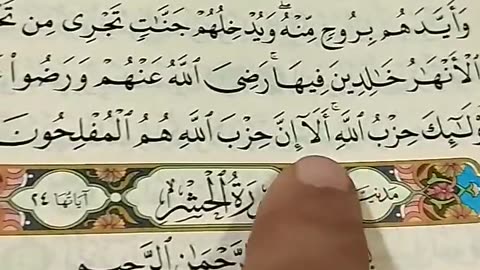 وَأَيَّدَهُم بِرُوحٍ مِّنْهُ ۖ وَيُدْخِلُهُمْ جَنَّٰتٍ تَجْرِى مِن
ٱلْأَنْهَٰرُ خَٰلِدِينَ فِيهَا ۚ رَضِىَ ٱللَّهُ عَنْهُمْ وَرَضُوا۟
حِزْبُ ٱللَّهِ ۚ أَلَآ إِنَّ حِزْبَ ٱللَّهِ هُمُ ٱلْمُفْلِحُونَ
ٱلْحَشْرِ آيَاتُهَا ٢٤
ٱلرَّحِيمِ